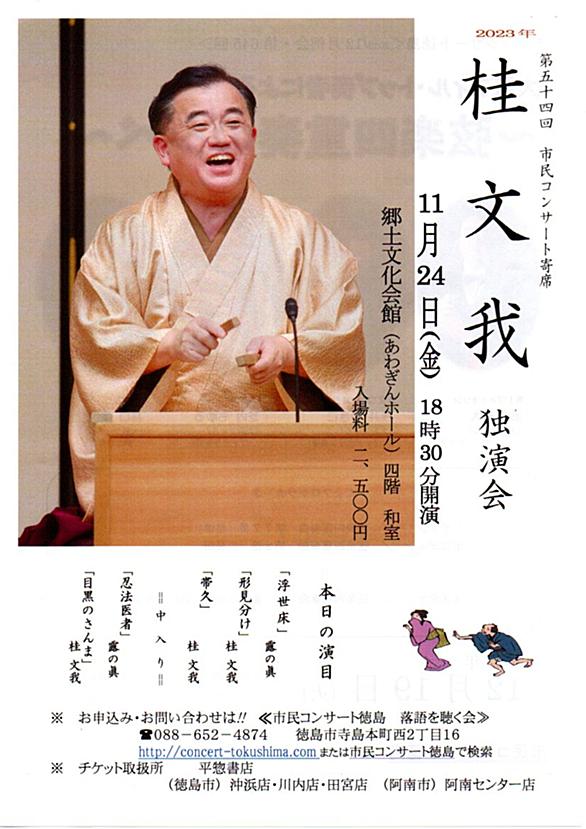 2023年
第五十四回 市民コンサート寄席
桂 文我 独演会
11月24日(金) 18時30分開演
郷土文化会館(あわぎんホール)四階 和室
入場料 二、五〇〇円
本日の演目
「浮世床」 露の眞
「形見分け」 桂 文我
「帯久」 桂 文我
=中入り=
「忍法医者」 露の眞
「目黒のさんま」 桂 文我
※ お申込み・お問い合わせは!! ≪市民コンサート徳島 落語を聴く会≫
☎088-652-4874 徳島市寺島本町西2丁目16
http://concert-tokushima.comまたは市民コンサート徳島で検索
※ チケット取扱所 平惣書店
(徳島市)沖浜店・川内店・田宮店 (阿南市)阿南センター店